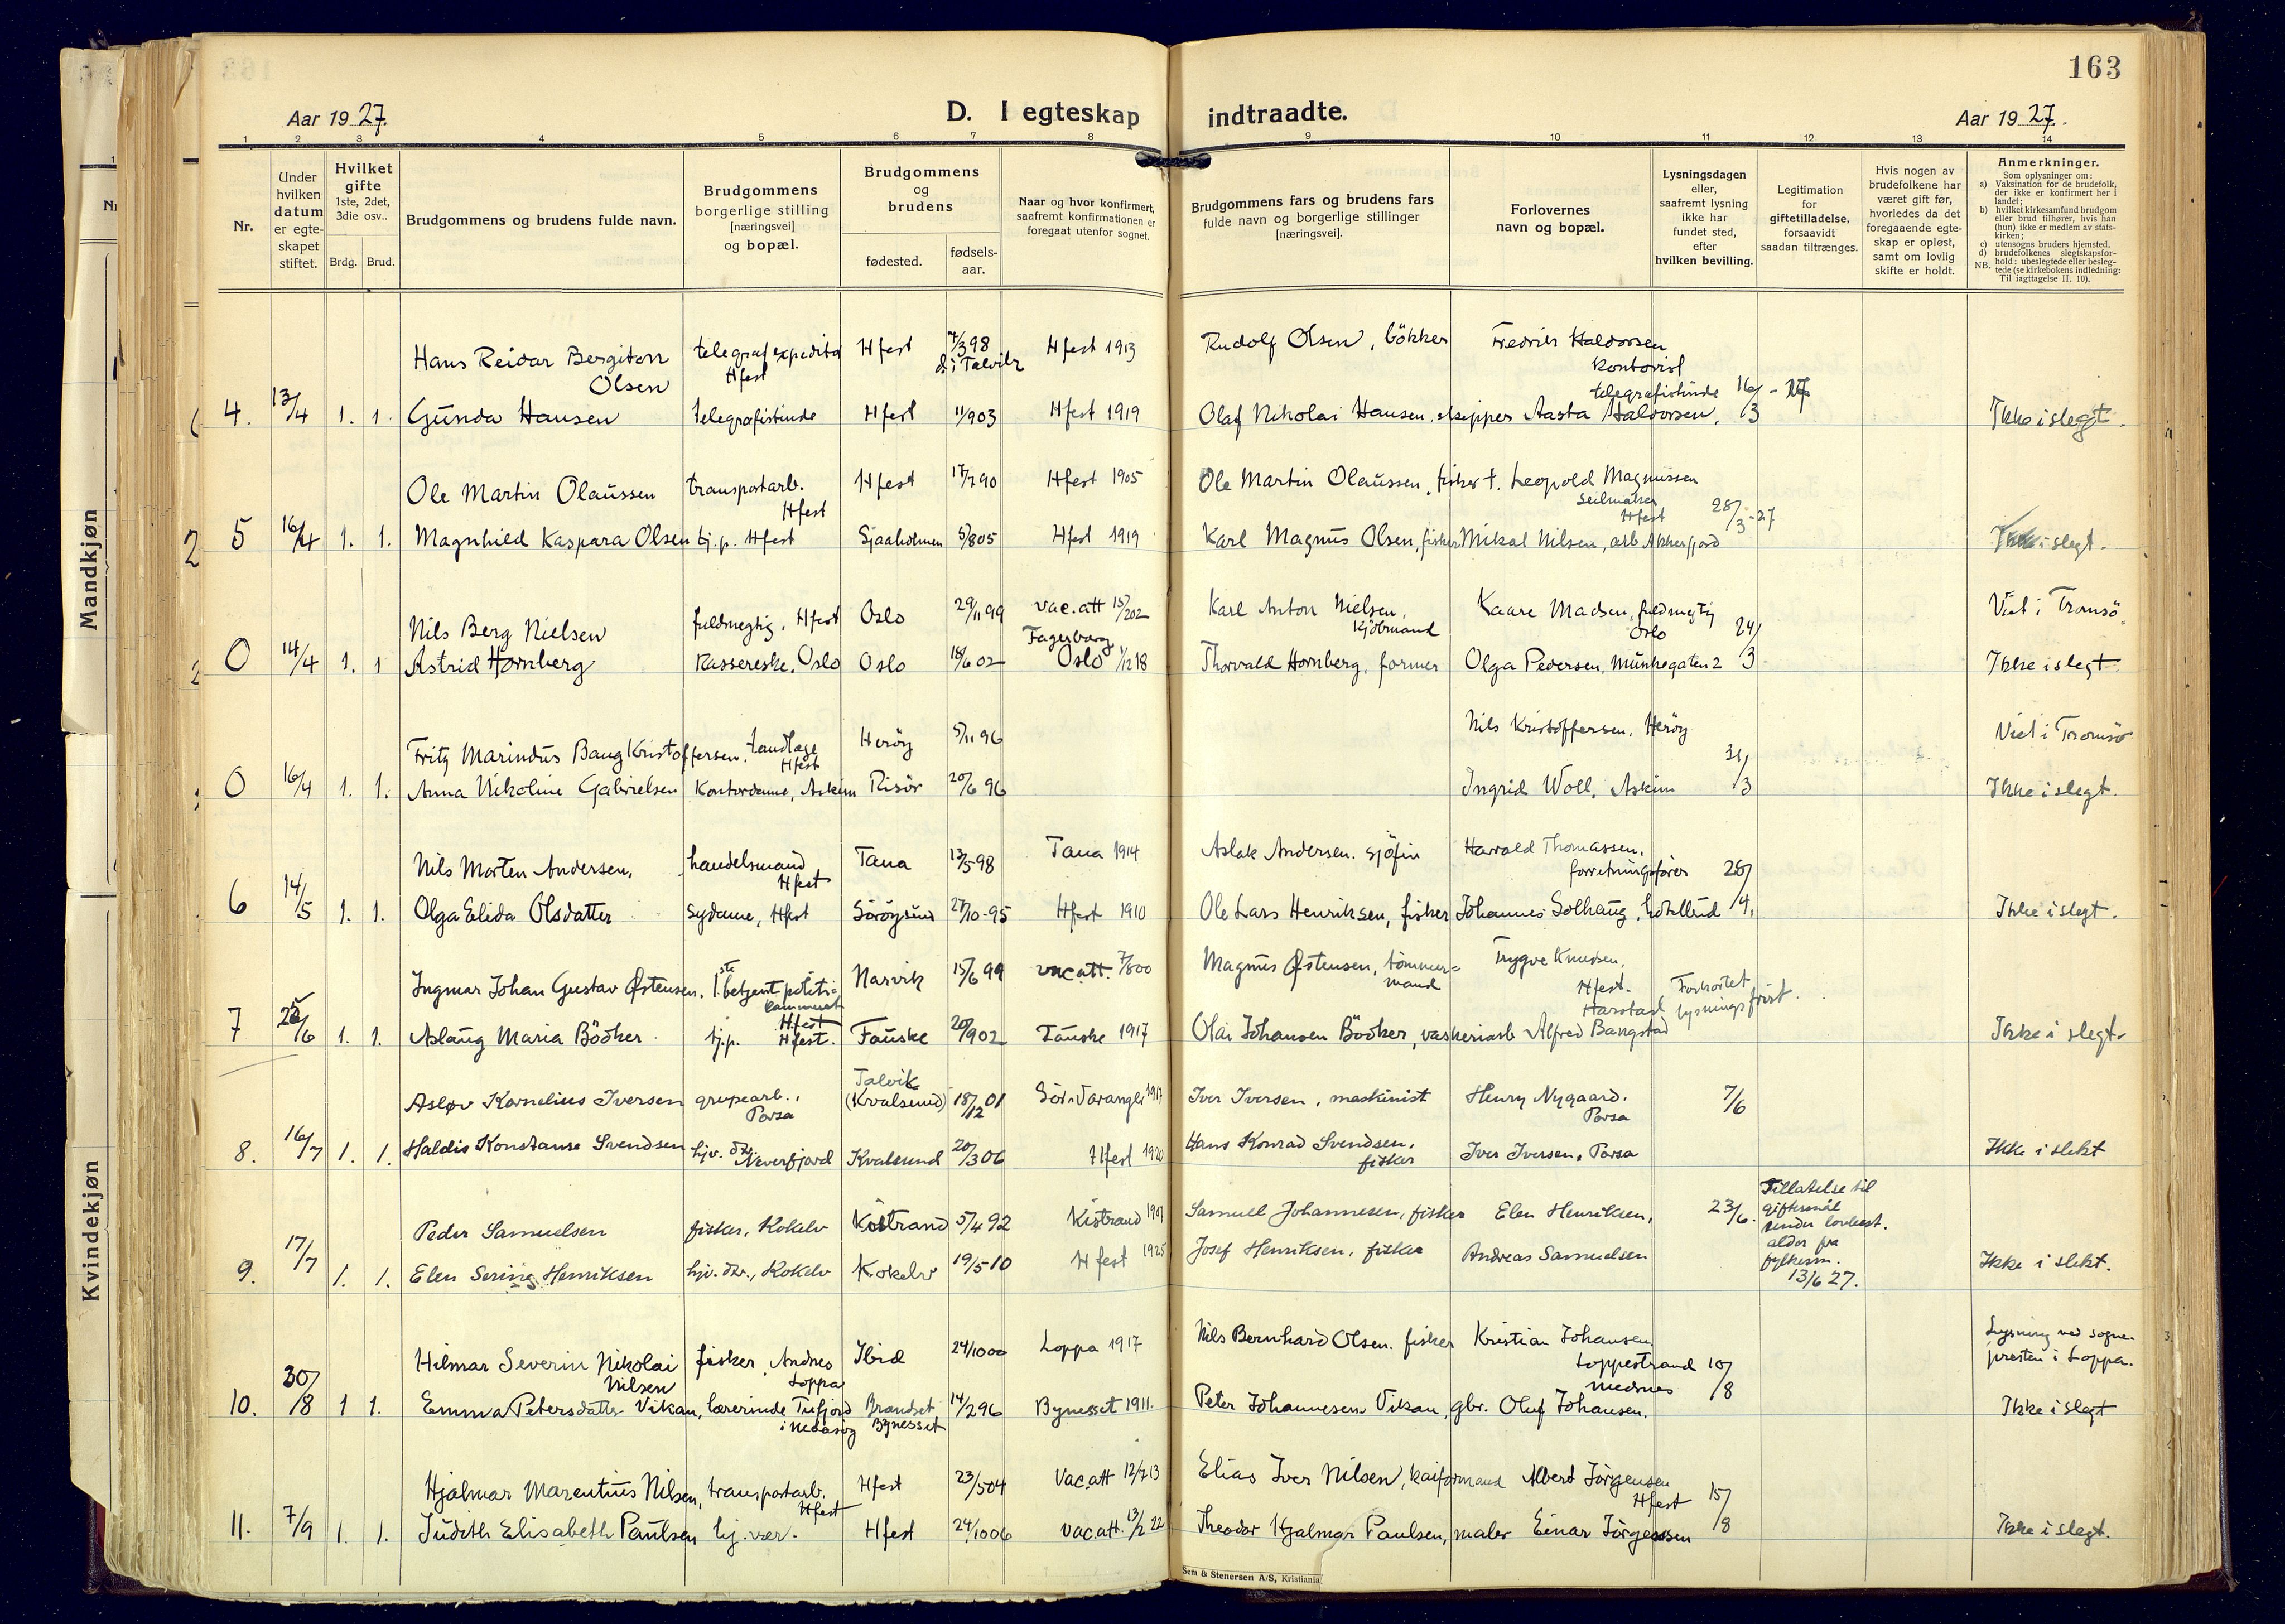 163
Aar 1927.
D. I egteskap indtraadte.
Aar 1927.
1 2 3 4 5 6 7 8 9 10 11 12 13 14
Nr.
Under hvilken datum er egteskapet stiftet.
Hvilket gifte 1ste, 2det, 3die osv..
Brdg. Brud.
Brudgommens og brudens fulde navn.
Brudgommens borgerlige stilling [næringsvei] og bopæl.
Brudgommens og brudens
fødested.
fødselsaar.
Naar og hvor konfirmert, saafremt konfirmationen er foregaat utenfor sognet.
Brudgommens fars og brudens fars fulde navn og borgerlige stillinger [næringsvei].
Forlovernes navn og bopæl.
Lysningsdagen eller, saafremt lysning ikke har fundet sted, efter hvilken bevilling.
Legitimation for giftetilladelse, forsaavidt saadan tiltrænges.
Hvis nogen av brudefolkene har været gift før, hvorledes da det foregaaende egteskap er opløst, samt om lovlig skifte er holdt.
Anmerkninger.
Som oplysninger om:
a) Vaksination for de brudefolk, der ikke er konfirmert her i landet;
b) hvilket kirkesamfund brudgom eller brud tilhører, hvis han (hun) ikke er medlem av statskirken;
c) utensogns bruders hjemsted.
d) brudefolkenes slegtskapsforhold: ubeslegtede eller beslegtede (se kirkebokens indledning: Til iagttagelse II. 10).
NB.
Mandkjøn
Kvindekjøn
Hans Reidar Bergiton Olsen telegrafexpeditør Hfest Hfest 7/3 98 d. i Talvik Hfest 1913 Rudolf Olsen, bökker Fredrik Haldorsen kontorist
4. 13/4 1. 1. Gunda Hansen telegrafistinde Hfest 11/9 03 Hfest 1919 Olaf Nikolai Hansen, skipper telegrafistinde Aasta Haldorsen, 16/3 - 27 Ikke i slegt.
Ole Martin Olaussen transportarb. Hfest Hfest 17/7 90 Hfest 1905 Ole Martin Olaussen, fisker †. Leopold Magnussen seilmaker Hfest
5 16/4 1. 1. Magnhild Kaspara Olsen tj.p. Hfest Sjaaholmen 5/8 05 Hfest 1919 Karl Magnus Olsen, fisker Mikal Nilsen, arb. Akkerfjord 28/3-27 Ikke i slegt.
Nils Berg Nielsen fuldmegtig, Hfest Oslo 29/11 99 vac. att 15/2 02 Karl Anton Nielsen, Kjöbmand Kaare Madsen, fuldmegtig Oslo Viet i Tromsö.
0 14/4 1. 1 Astrid Hornberg Kassereske, Oslo Oslo 18/6 02 Fagerborg Oslo 1/12 18 Thorvald Hornberg, former Olga Pedersen, Munkegaten 2 24/3 Ikke i slegt
Fritz Marindus Baug Kristoffersen, tandlæge Hfest Heröy 5/11 96 Nils Kristoffersen, Heröy Viet i Tromsö
0 16/4 1. 1. Anna Nikoline Gabrielsen Kontordame, Askim Risör 20/6 96 Ingrid Woll, Askim 31/3 Ikke i slegt.
Nils Morten Andersen, handelsmand Hfest Tana 13/5 98 Tana 1914 Aslak Andersen. sjöfin Harald Thomassen, forretningsförer
6 14/5 1. 1. Olga Elida Olsdatter sydame, Hfest Söröysund 27/10-95 Hfest 1910 Ole Lars Henriksen, fisker Johannes Solhaug, hotelleid 28/4. Ikke i slegt.
Ingmar Johan Gustav Østensen, 1ste betjent politikammeret Hfest Narvik 15/6 99 vac. att. 7/8 00 Magnus Østensen, tömmermand Trygve Knudsen, Hfest.
7 25/6 1. 1. Aslaug Maria Bödker tj.p. Hfest. Fauske 20/9 02 Fauske 1917 Olai Johansen Bödker, vaskeriarb Harstad Alfred Bangstad Forkortet lysningsfrist. Ikke i slegt.
Asløv Kornelius Iversen grupearb., Porsa Talvik (Kvalsund) 18/12 01 Sör-Varanger 1917 Iver Iversen, maskinist Henry Nygaard. Porsa 7/6
8. 16/7 1. 1. Haldis Konstanse Svendsen hjv. dtr. Neverfjord Kvalsund 20/3 06 Hfest 1920 Hans Konrad Svendsen, fisker Iver Iversen, Porsa Ikke i slekt
Peder Samuelsen fisker, Kokelv Kistrand 5/4 92 Kistrand 1907 Samuel Johannesen, fisker Elen Henriksen, 23/6. Tillatelse til giftermål under lovbest. alder fra fylkesm. 13/6 27.
9. 17/7 1. 1. Elen Serine Henriksen hjv. dtr., Kokelv Kokelv 19/5-10 Hfest 1925 Josef Henriksen, fisker Andreas Samuelsen Ikke i slekt.
Hilmar Severin Nikolai Nilsen fisker, Andnes Loppa Ibid 24/10 00 Loppa 1917 Nils Bernhard Olsen. fisker Kristian Johansen Loppestrand Medsnes Lysning ved sogne-presten i Loppa.
10. 30/8 1 1. Emma Petersdatter Vikan, lærerinde Tufjord i Maasöy Brandset Bynesset 14/2 96 Bynesset 1911. Peter Johannesen Vikan, gbr. Oluf Johansen. 10/8 Ikke i slegt
Hjalmar Marentius Nilsen, transportarb. Hfest Hfest 23/5 04 Vac. att 12/7 13 Elias Iver Nilsen, kaiformand Albert Jörgensen Hfest
11. 7/9 1. 1. Judith Elisabeth Paulsen hj. vær. Hfest 24/10 06 vac. att. 13/2 22 Theodor Hjalmar Paulsen, maler Einar Jörgensen 15/8 Ikke i slegt.
Sem & Stenersen A/S, Kristiania.